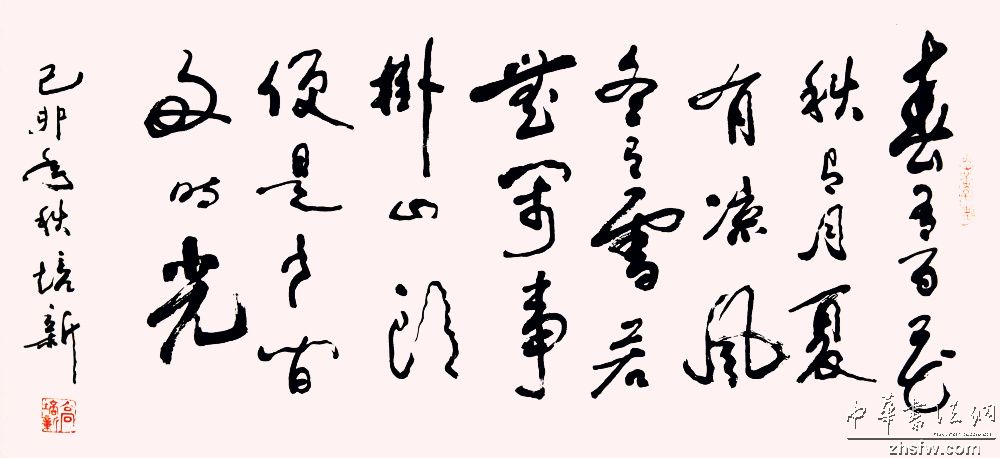 春有百花
秋有月夏
有凉风
冬有雪若
無閑事
掛心頭
便是人间
好时光
己卯年秋培新
高培新
中华书法网
zhsfw.com